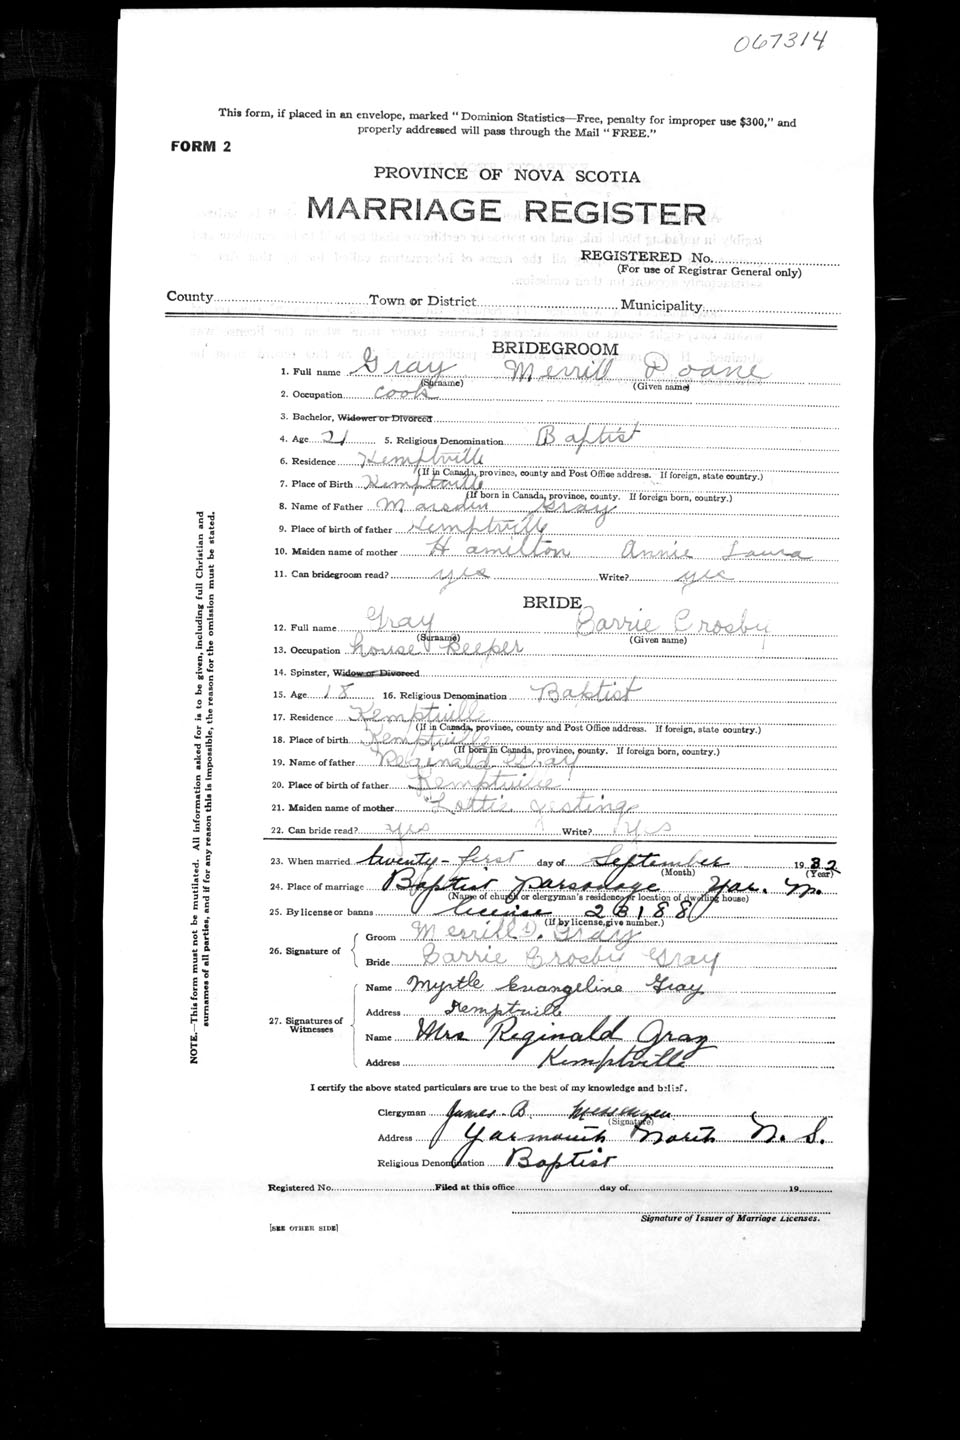 067314
This form, if placed in an envelope, marked "Dominion Statistics—Free, penalty for improper use $300," and
properly addressed will pass through the Mail "FREE."
FORM 2
PROVINCE OF NOVA SCOTIA
MARRIAGE REGISTER
REGISTERED No.
(For use of Registrar General only)
County Town or District Municipality
BRIDEGROOM
1. Full name Gray Merrill Doane
(Surname) (Given name)
2. Occupation cook
3. Bachelor, Widower or Divorced
4. Age 21 5. Religious Denomination Baptist
6. Residence Kemptville
(If in Canada, province, county and Post Office address. If foreign, state country.)
7. Place of Birth Kemptville
(If born in Canada, province, county. If foreign born, country.)
8. Name of Father Marsden Gray
9. Place of birth of father Kemptville
10. Maiden name of mother Hamilton Annie Laura
11. Can bridegroom read? yes Write? yes
BRIDE
12. Full name Gray Carrie Crosby
(Surname) (Given name)
13. Occupation house keeper
14. Spinster, Widow or Divorced
15. Age 18 16. Religious Denomination Baptist
17. Residence Kemptville
(If in Canada, province, county and Post Office address. If foreign, state country.)
18. Place of birth Kemptville
(If born in Canada, province, county. If foreign born, country.)
19. Name of father Reginald Gray
20. Place of birth of father Kemptville
21. Maiden name of mother Lottie
22. Can bride read? yes Write? Yes
23. When married twenty-first day of September 1932
(Month) (Year)
24. Place of marriage Baptist parsonage Yar. N.
(Name of church or clergyman's residence or location of dwelling house)
25. By license or banns license 23188
(If by license, give number.)
26. Signature of
Groom Merrill D. Gray
Bride Carrie Crosby Gray
27. Signatures of Witnesses
Name Myrtle Evangeline Gray
Address Kemptville
Name Mrs Reginald Gray
Address Kemptville
I certify the above stated particulars are true to the best of my knowledge and belief.
Clergyman James B.
(Signature)
Address Yarmouth North N. S.
Religious Denomination Baptist
Registered No. Filed at this office day of 19
Signature of Issuer of Marriage Licenses.
[SEE OTHER SIDE]
NOTE.—This form must not be mutilated. All information asked for is to be given, including full Christian and
surnames of all parties, and if for any reason this is impossible, the reason for the omission must be stated.